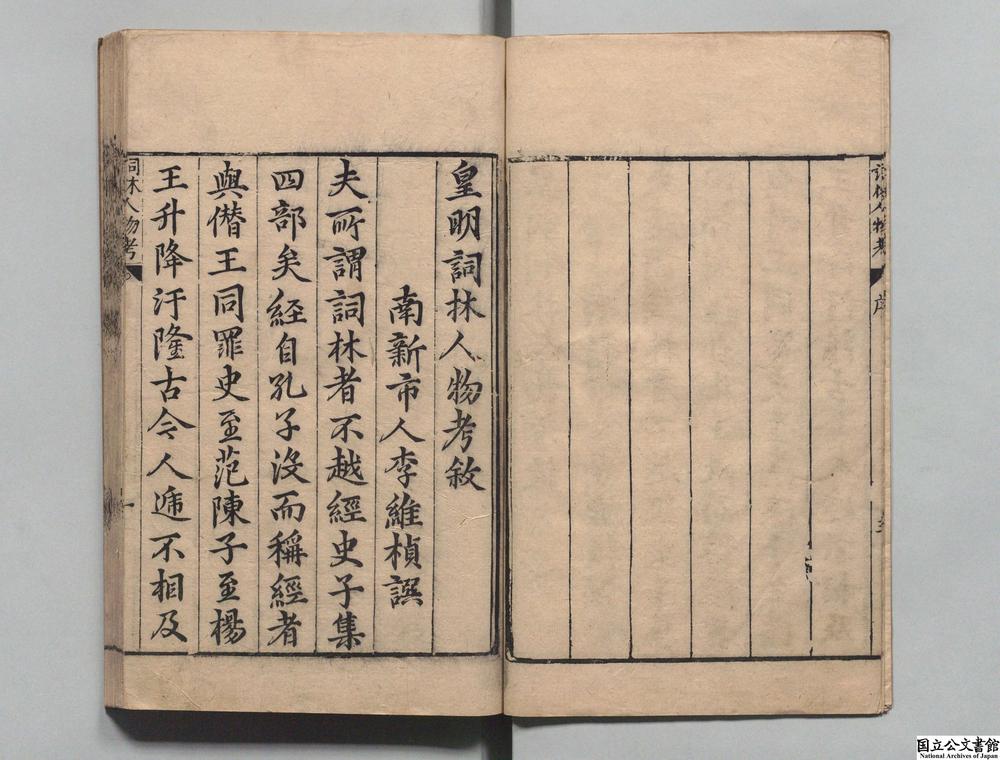 皇明詞林人物考敘
南新市人李維楨譔
夫所謂詞林者不越經史子集
四部矣經自孔子沒而稱經者
與僭王同罪史至范陳子至楊
王升降汙隆古今人遞不相及
詞林人物考
一
人物考
序
国立公文書館
National Archives of Japan